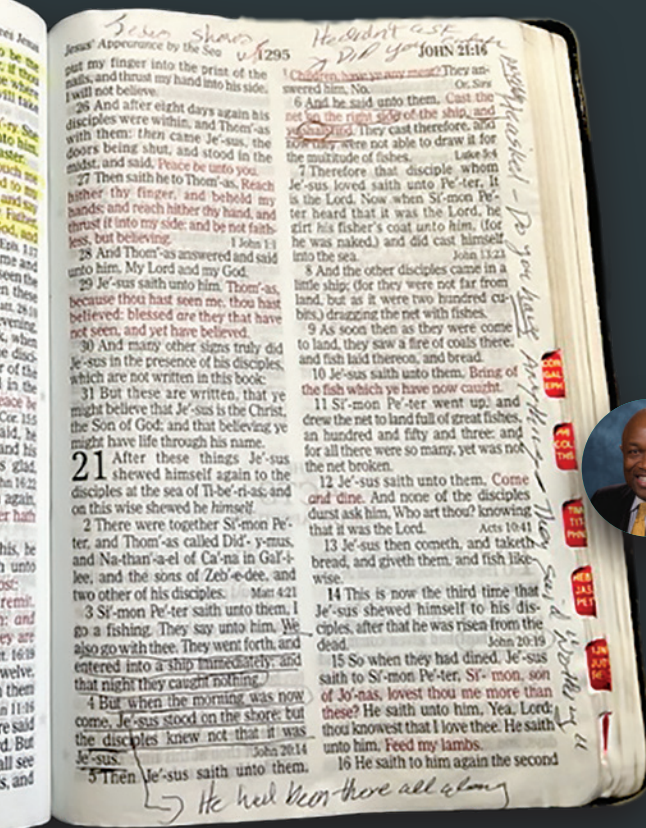 Jesus shows
He didn't ask
Did you
Jesus' Appearance by the Sea
1295
JOHN 21:16
put my finger into the print of the
nails, and thrust my hand into his side,
I will not believe.
26 And after eight days again his
disciples were within, and Thom'-as
with them: then came Je'-sus, the
doors being shut, and stood in the
midst, and said, Peace be unto you.
27 Then saith he to Thom'-as, Reach
hither thy finger, and behold my
hands; and reach hither thy hand, and
thrust it into my side: and be not faith-
less, but believing.
1 John 1:1
28 And Thom'-as answered and said
unto him, My Lord and my God.
29 Je'-sus saith unto him, Thom'-as,
because thou hast seen me, thou hast
believed: blessed are they that have
not seen, and yet have believed.
30 And many other signs truly did
Je'-sus in the presence of his disciples,
which are not written in this book:
31 But these are written, that ye
might believe that Je'-sus is the Christ,
the Son of God; and that believing ye
might have life through his name.
21 After these things Je'-sus
shewed himself again to the
disciples at the sea of Ti-be'-ri-as; and
on this wise shewed he himself.
2 There were together Si'-mon Pe'-
ter, and Thom'-as called Did'-y-mus,
and Na-than'-a-el of Ca'-na in Gal'-i-
lee, and the sons of Zeb'-e-dee, and
two other of his disciples.
Matt 4:21
3 Si'-mon Pe'-ter saith unto them, I
go a fishing. They say unto him, We
also go with thee. They went forth, and
entered into a ship immediately; and
that night they caught nothing.
4 But when the morning was now
come, Je'-sus stood on the shore: but
the disciples knew not that it was
Je'-sus.
John 20:14
5 Then Je'-sus saith unto them,
Children, have ye any meat? They an-
swered him, No.
6 And he said unto them, Cast the
net on the right side of the ship, and
ye shall find. They cast therefore, and
now they were not able to draw it for
the multitude of fishes.
Luke 5:4
7 Therefore that disciple whom
Je'-sus loved saith unto Pe'-ter, It
is the Lord. Now when Si'-mon Pe'-
ter heard that it was the Lord, he
girt his fisher's coat unto him, (for
he was naked,) and did cast himself
into the sea.
John 13:23
8 And the other disciples came in a
little ship; (for they were not far from
land, but as it were two hundred cu-
bits,) dragging the net with fishes.
9 As soon then as they were come
to land, they saw a fire of coals there,
and fish laid thereon, and bread.
10 Je'-sus saith unto them, Bring of
the fish which ye have now caught.
11 Si'-mon Pe'-ter went up, and
drew the net to land full of great fishes,
an hundred and fifty and three: and
for all there were so many, yet was not
the net broken.
12 Je'-sus saith unto them, Come
and dine. And none of the disciples
durst ask him, Who art thou? knowing
that it was the Lord.
Acts 10:41
13 Je'-sus then cometh, and taketh
bread, and giveth them, and fish like-
wise.
14 This is now the third time that
Je'-sus shewed himself to his dis-
ciples, after that he was risen from the
dead.
John 20:19
15 So when they had dined, Je'-sus
saith to Si'-mon Pe'-ter, Si'-mon, son
of Jo'-nas, lovest thou me more than
these? He saith unto him, Yea, Lord;
thou knowest that I love thee. He saith
unto him, Feed my lambs.
16 He saith to him again the second
He asked - Do you have anything - They said Nothing
He had been there all along
COR
GAL
EPH
COL
THS
TIM
TIT
PHM
HEB
JAS
PET